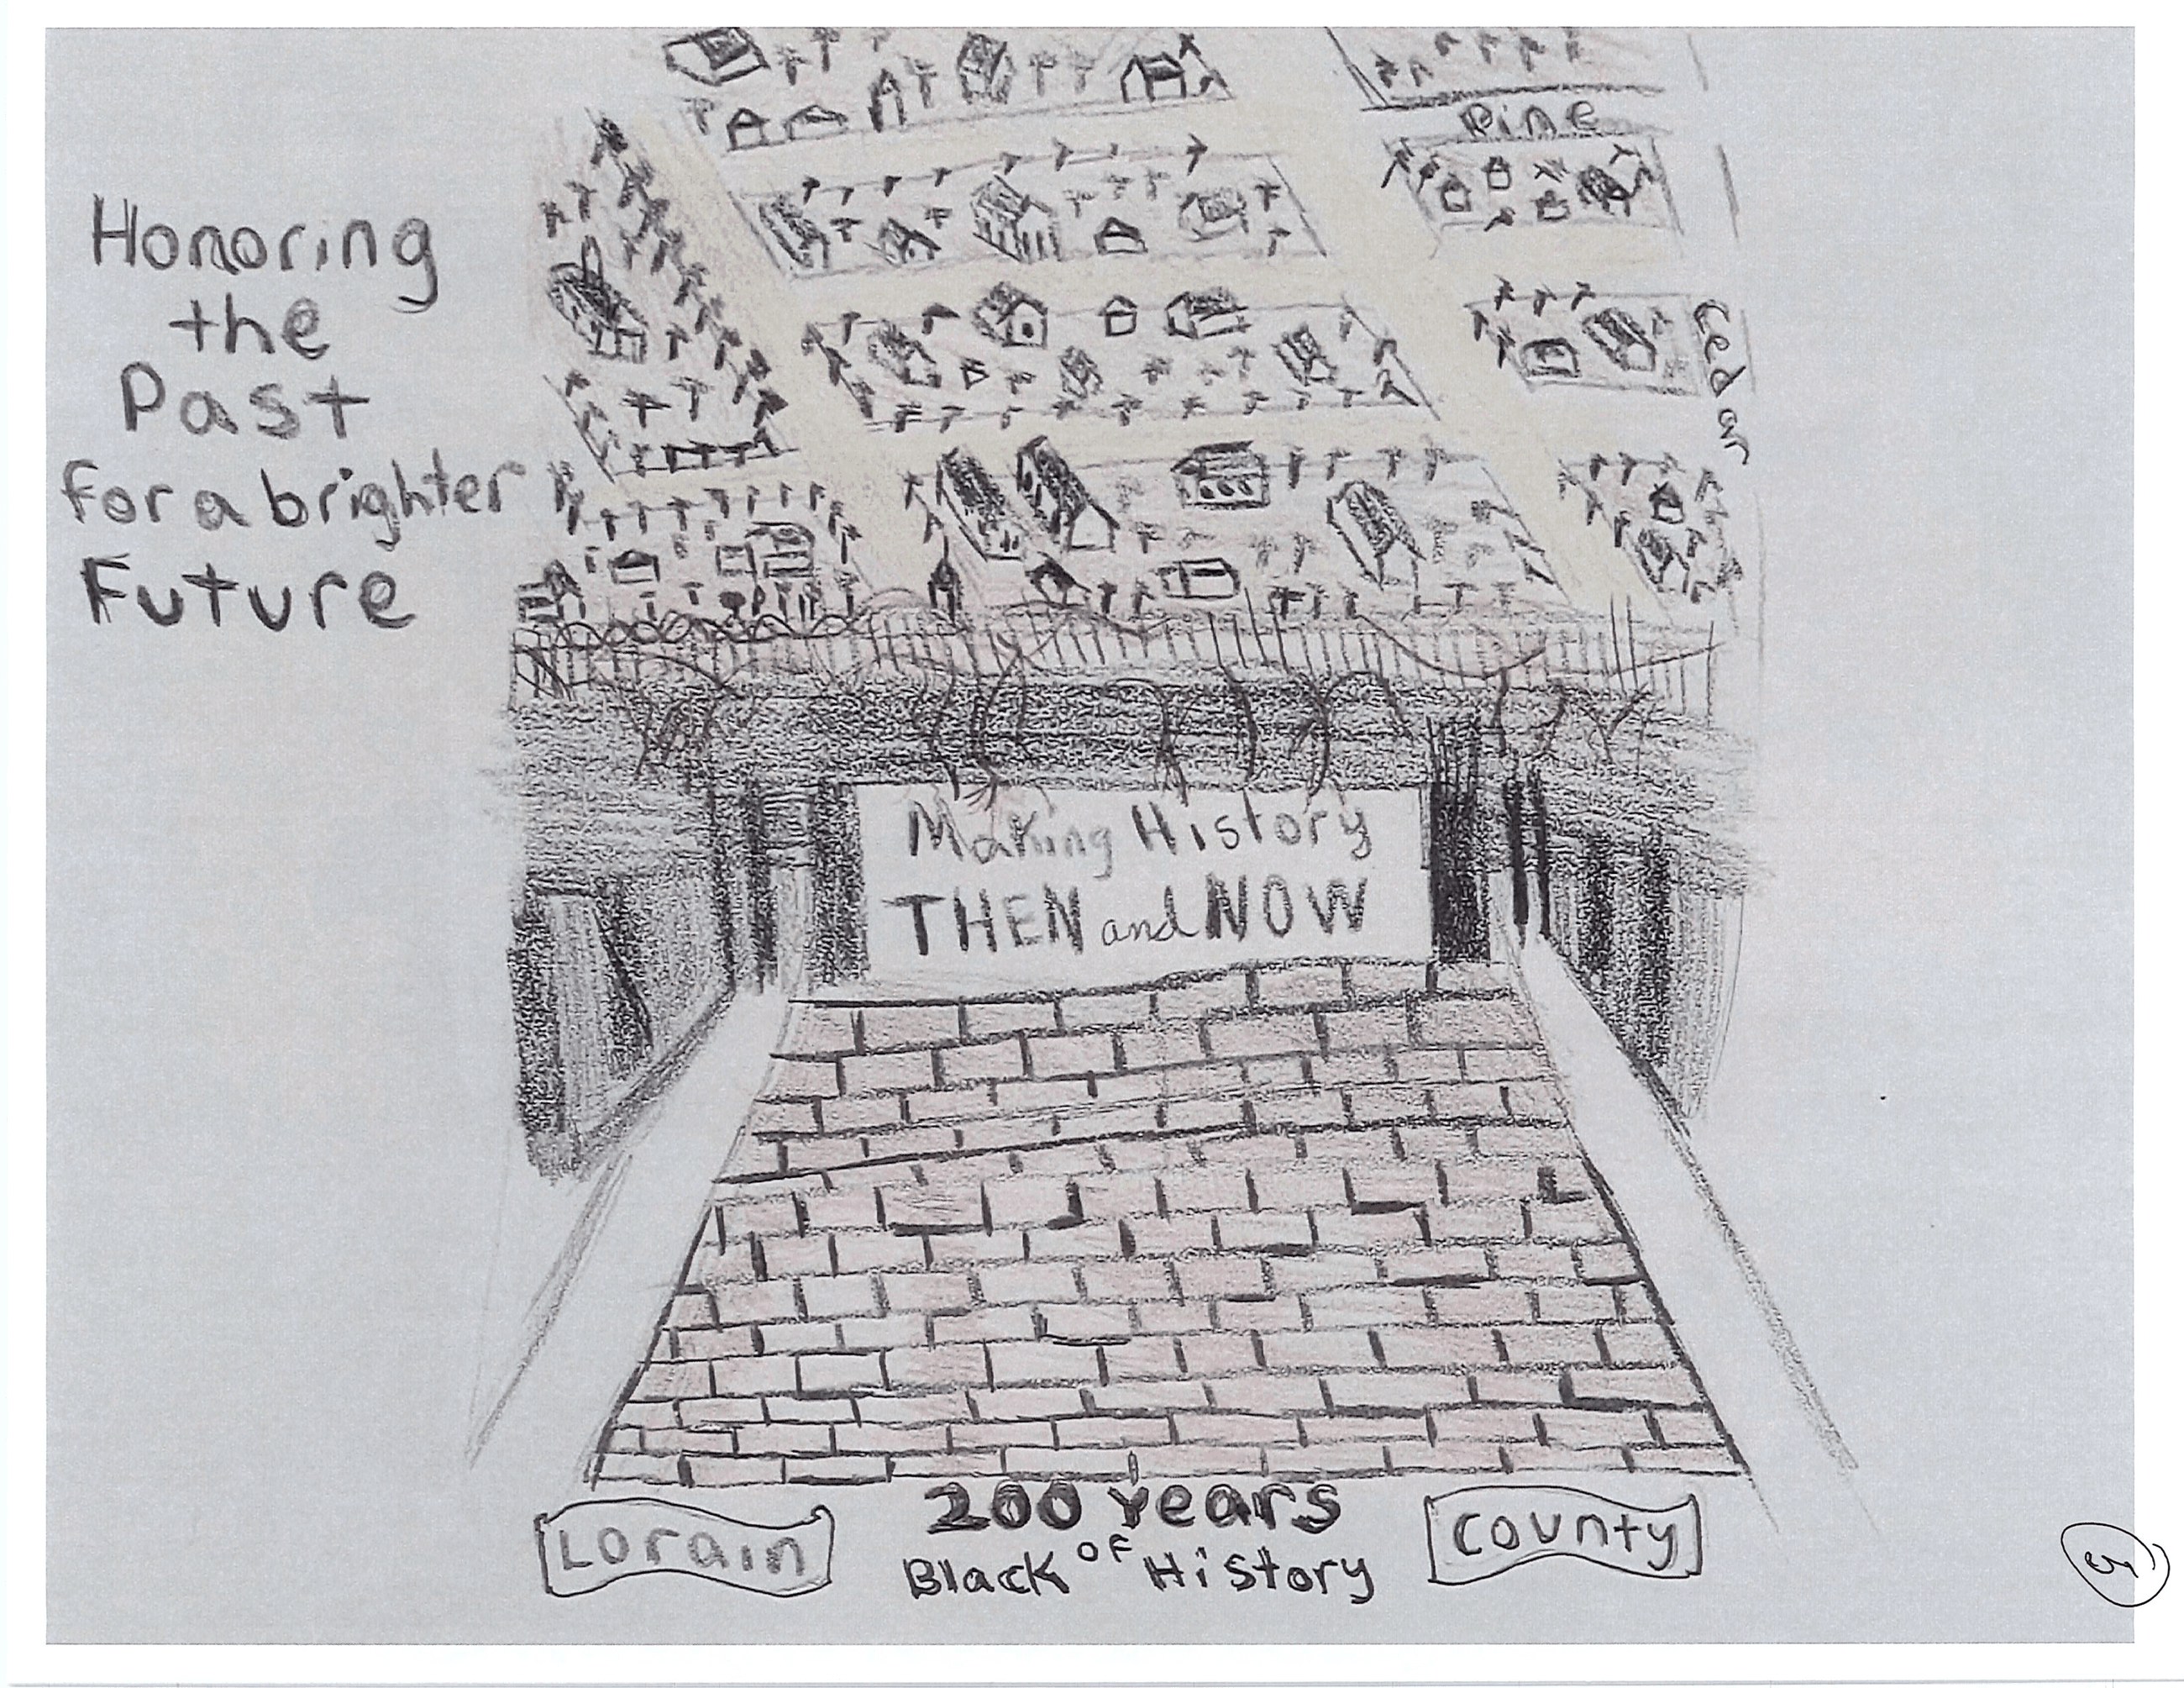 Honoring
the
Past
for a brighter
Future
Pine
Cedar
Making History
THEN and NOW
200 Years
of
Black History
Lorain
County